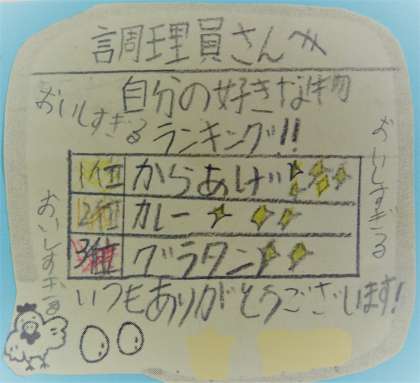 調理員さんへ
自分の好きな物
ランキング!!
おいしすぎる
おいしすぎる
おいしすぎる
1位 からあげ
2位 カレー
3位 グラタン
いつもありがとうございます!